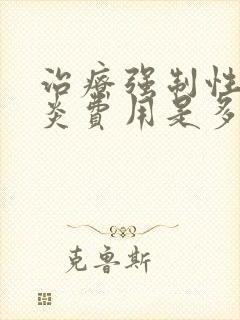 治療强制性
炎費用是多
克鲁斯